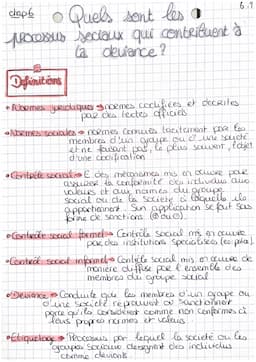 chap 6
6.1
Quels sont les
processus sociaux qui contribuent à
la déviance ?
Définitions
Normes juridiques → normes codifiées et décrites
par des textes officiels
Normes sociales → normes connues tacitement par les
membres d'un groupe ou d'une société
et ne faisant pas, le plus souvent, l'objet
d'une codification
Contrôle social → E des mécanismes mis en œuvre pour
assurer la conformité des individus aux
valeurs et aux normes du groupe
social ou de la société à laquelle ils
appartiennent. Son application se fait sous
forme de sanctions (⊕ ou ⊖).
Contrôle social formel → Contrôle social mis en œuvre
par des institutions spécialisées
Contrôle social informel → Contrôle social mis en œuvre de
manière diffuse par l'ensemble des
membres du groupe social
Déviance → Conduite que les membres d'un groupe ou
d'une société réprouvent ou sanctionnent
parce qu'ils la considèrent comme non conformes à
leurs propres normes et valeurs
Étiquetage → Processus par lequel la société ou les
groupes sociaux désignent des individus
comme déviants